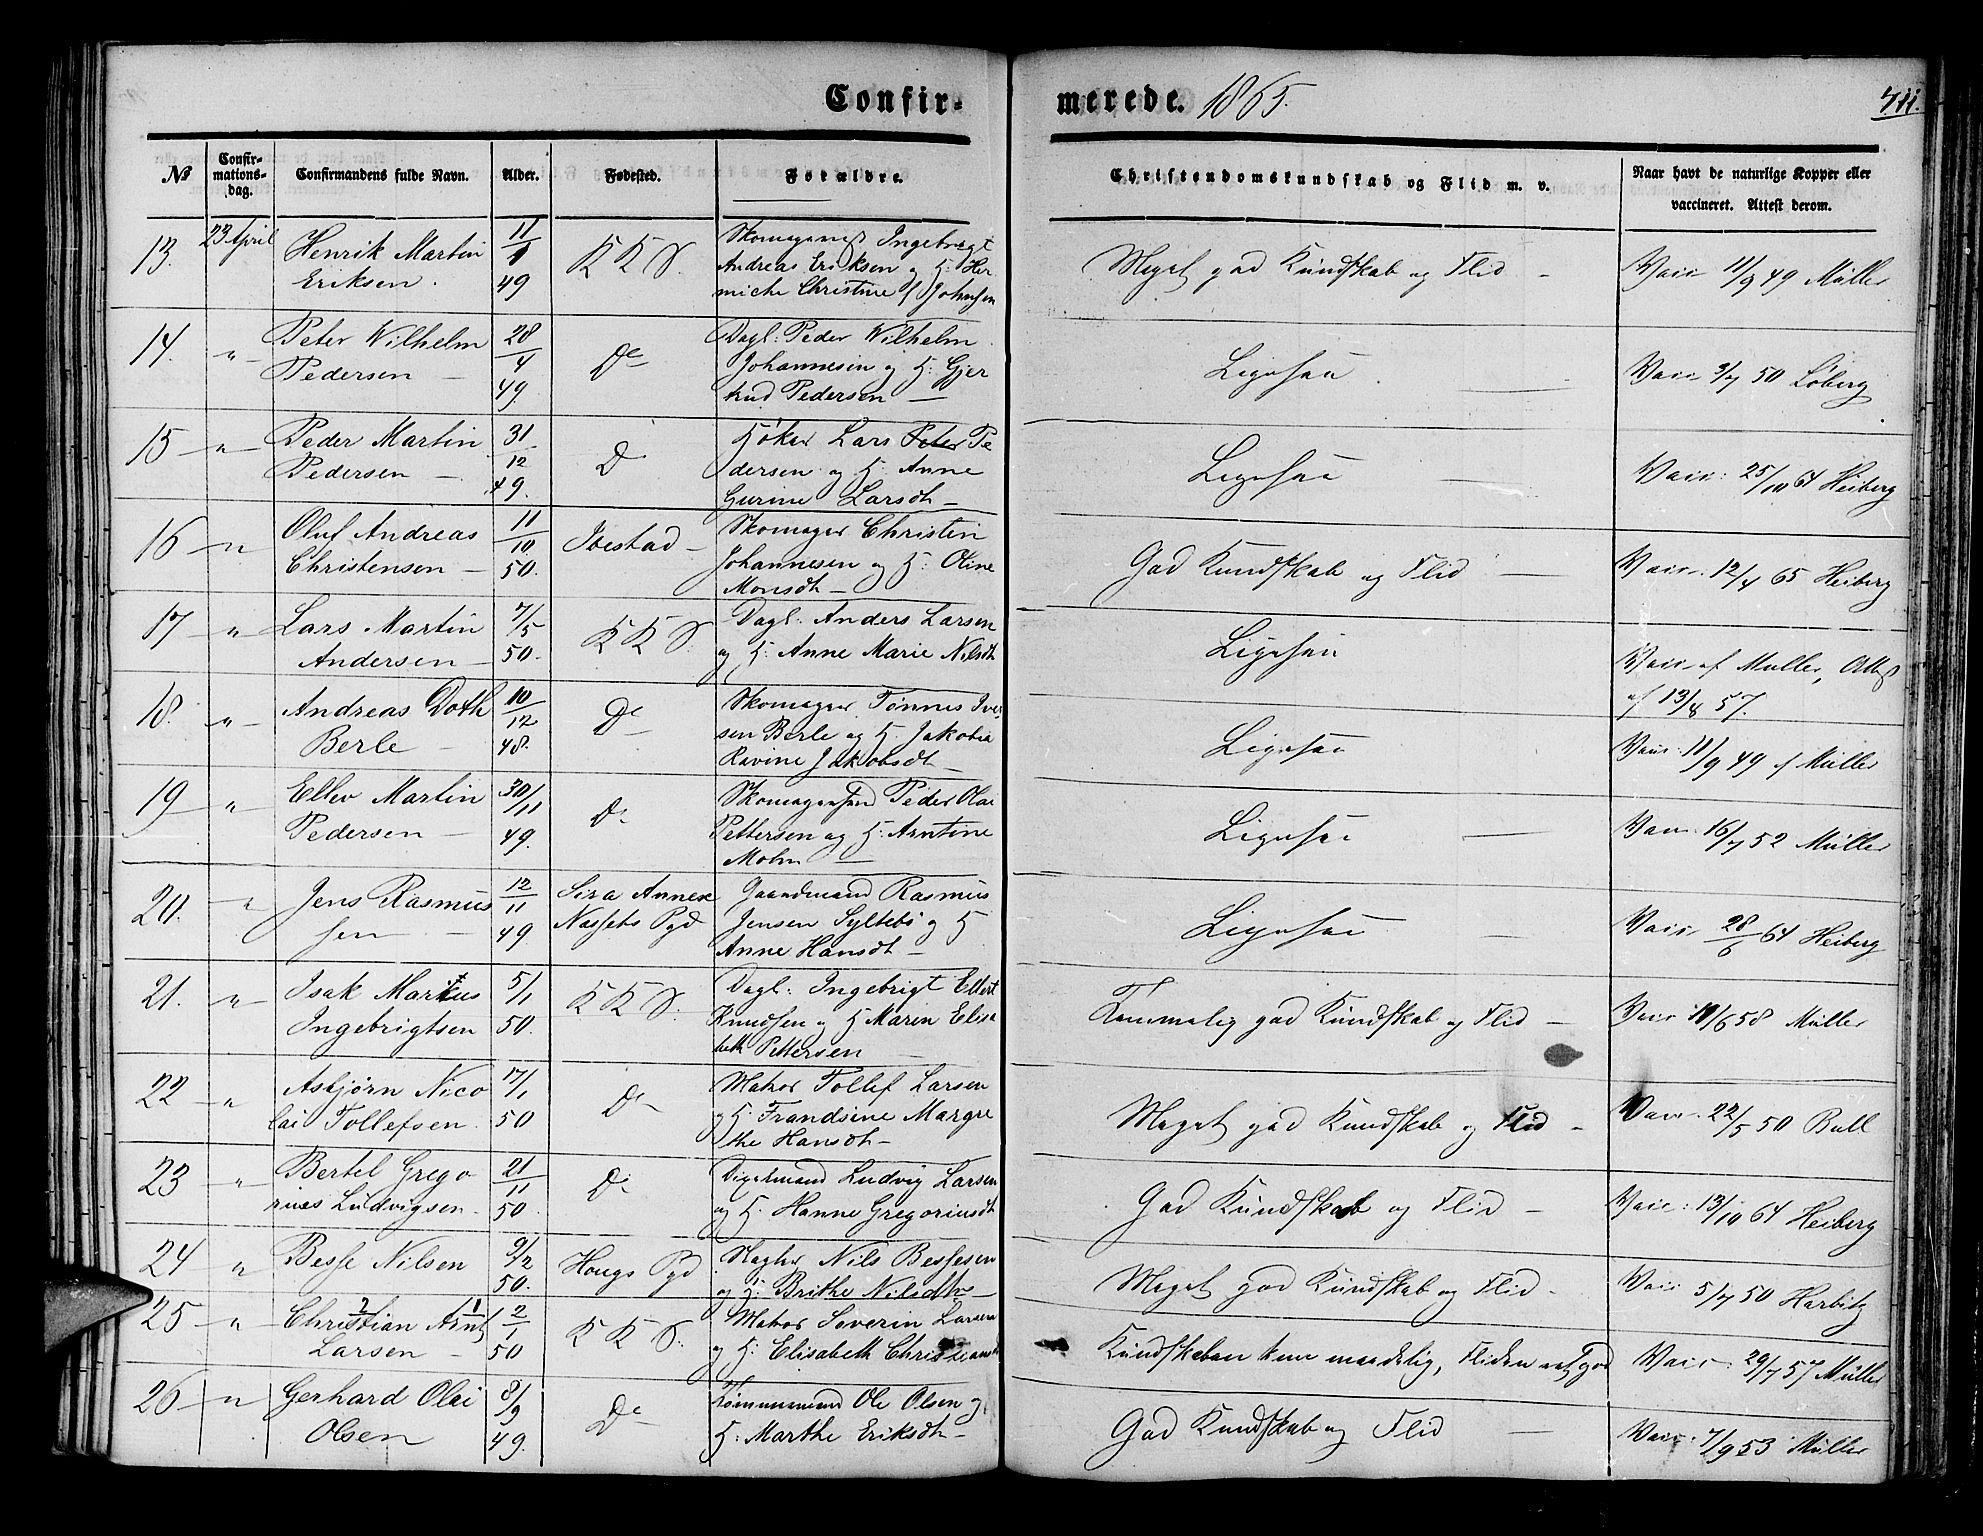 Confir-
merede. 1865.
№
Confir-
mations-
dag.
Confirmandens fulde Navn.
Alder.
Fødested.
Forældre.
Christendomskundskab og Flid m. v.
Naar havt de naturlige Kopper eller
vaccineret. Attest derom.
13. 23 April Henrik Martin 11 K K S. Ingebrigt Meget god Kundskab og Flid - Vacc 11/9 49 Müller
Eriksen. 49 Andreas Eriksen og H: Her
miche Christine Johnsen
14. " Peter Wilhelm 28 Do Dagl: Peder Wilhelm Ligesaa Vacc 3/7 50 Løberg
Pedersen - 4 Johannesen og H: Gjer
49. trud Pedersen -
15 " Peder Martin 31 D Høker Lars Peter Pe Ligesaa - Vacc: 25/10 64 Heiberg
Pedersen - 12 dersen og H. Anne
49. Gurine Larsdt -
16 " Oluf Andreas 11 Ibestad - Skomager Christin God Kundskab og Flid - Vacc: 12/4 65 Heiberg
Christensen - 10 Johannesen og H: Oline
50. Monsdt -
17 " Lars Martin 7/5 K K S. Dagl: Anders Larsen Ligesaa Vacc af Müller, Attest
Andersen - 50. og H: Anne Marie Nilsdt af 13/8 57.
18. " Andreas Doth 10 Do Skomager Tønnes Iver Ligesaa Vacc: 11/9 49 af Müller
Berle - 12 sen Berle og H. Jakobia
48. Ravine Jakobsdt -
19 " Ellev Martin 30/11 Do Peder Olai Ligesaa - Vacc: 16/7 52 Müller
Pedersen - 49. Pettersen og H. Arntine
Mohn -
20. " Jens Rasmus 12 Sira Annex Gaardmand Rasmus Ligesaa - Vacc. 28/6 64 Heiberg
sen - 11 Næssets Pgd Jensen Syltebø og H
49 Anne Hansdt -
21. " Isak Markus 5/1 K K S. Dagl: Ingebrigt Ellert Temmelig god Kundskab og Flid - Vacc 11/6 58 Müller
Ingebrigtsen 50. Knudsen og H Maren Elisa
beth Pettersen
22 " Asbjørn Nico 17/1 Do Matros Tollef Larsen Meget god Kundskab og Flid - Vacc. 22/5 50 Bull
lai Tollefsen. 50 og H. Frandsine Margre
the Hansdt -
23 " Bertel Grego 21 Do Ludvig Larsen God Kundskab og Flid - Vacc: 13/10 64 Heiberg
rius Ludvigsen. 11 og H. Hanne Gregoriusdt
50.
24 " Besse Nilsen 9/2 Hougs Pgd Nils Bessesen Meget god Kundskab og Flid - Vacc 5/7 50 Harbitz
50. og H. Brithe Nilsdtr -
25 " Christian Arnt 2/1 K K S. Matros Severin Larsen Kundskaben kun maadelig, Fliden god Vacc: 29/7 57 Müller
Larsen - 50 og H. Elisabeth Christiansdt
26 " Gerhard Olai 8/9 Do Tømmermand Ole Olsen og God Kundskab og Flid - Vacc: 7/9 53 Müller
Olsen 49. H: Marthe Eriksdt -